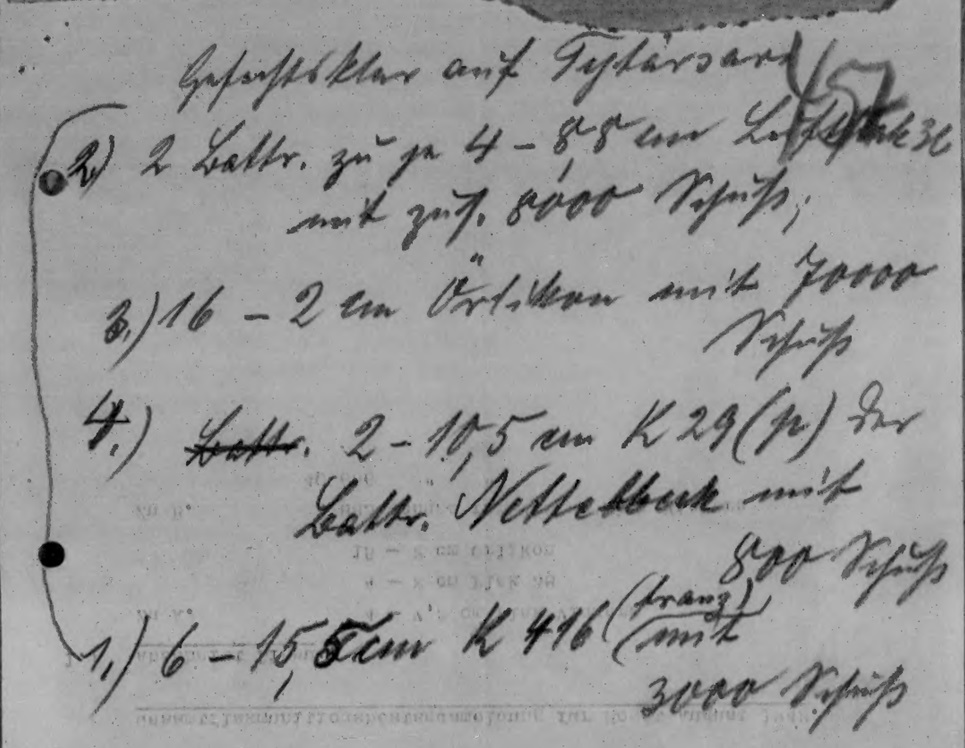 Gefechtsklar auf
57
2.) 2 Battr. zu je 4 – 8,8 cm
mit zus. 8000 Schuß;
3.) 16 – 2 cm Örlikon mit 70000
Schuß
4.) Battr. 2 – 10,5 cm K 29 (p) der
Battr. Nettelbeck mit
800 Schuß
1.) 6 – 15,5 cm K 416 (franz) mit
3000 Schuß